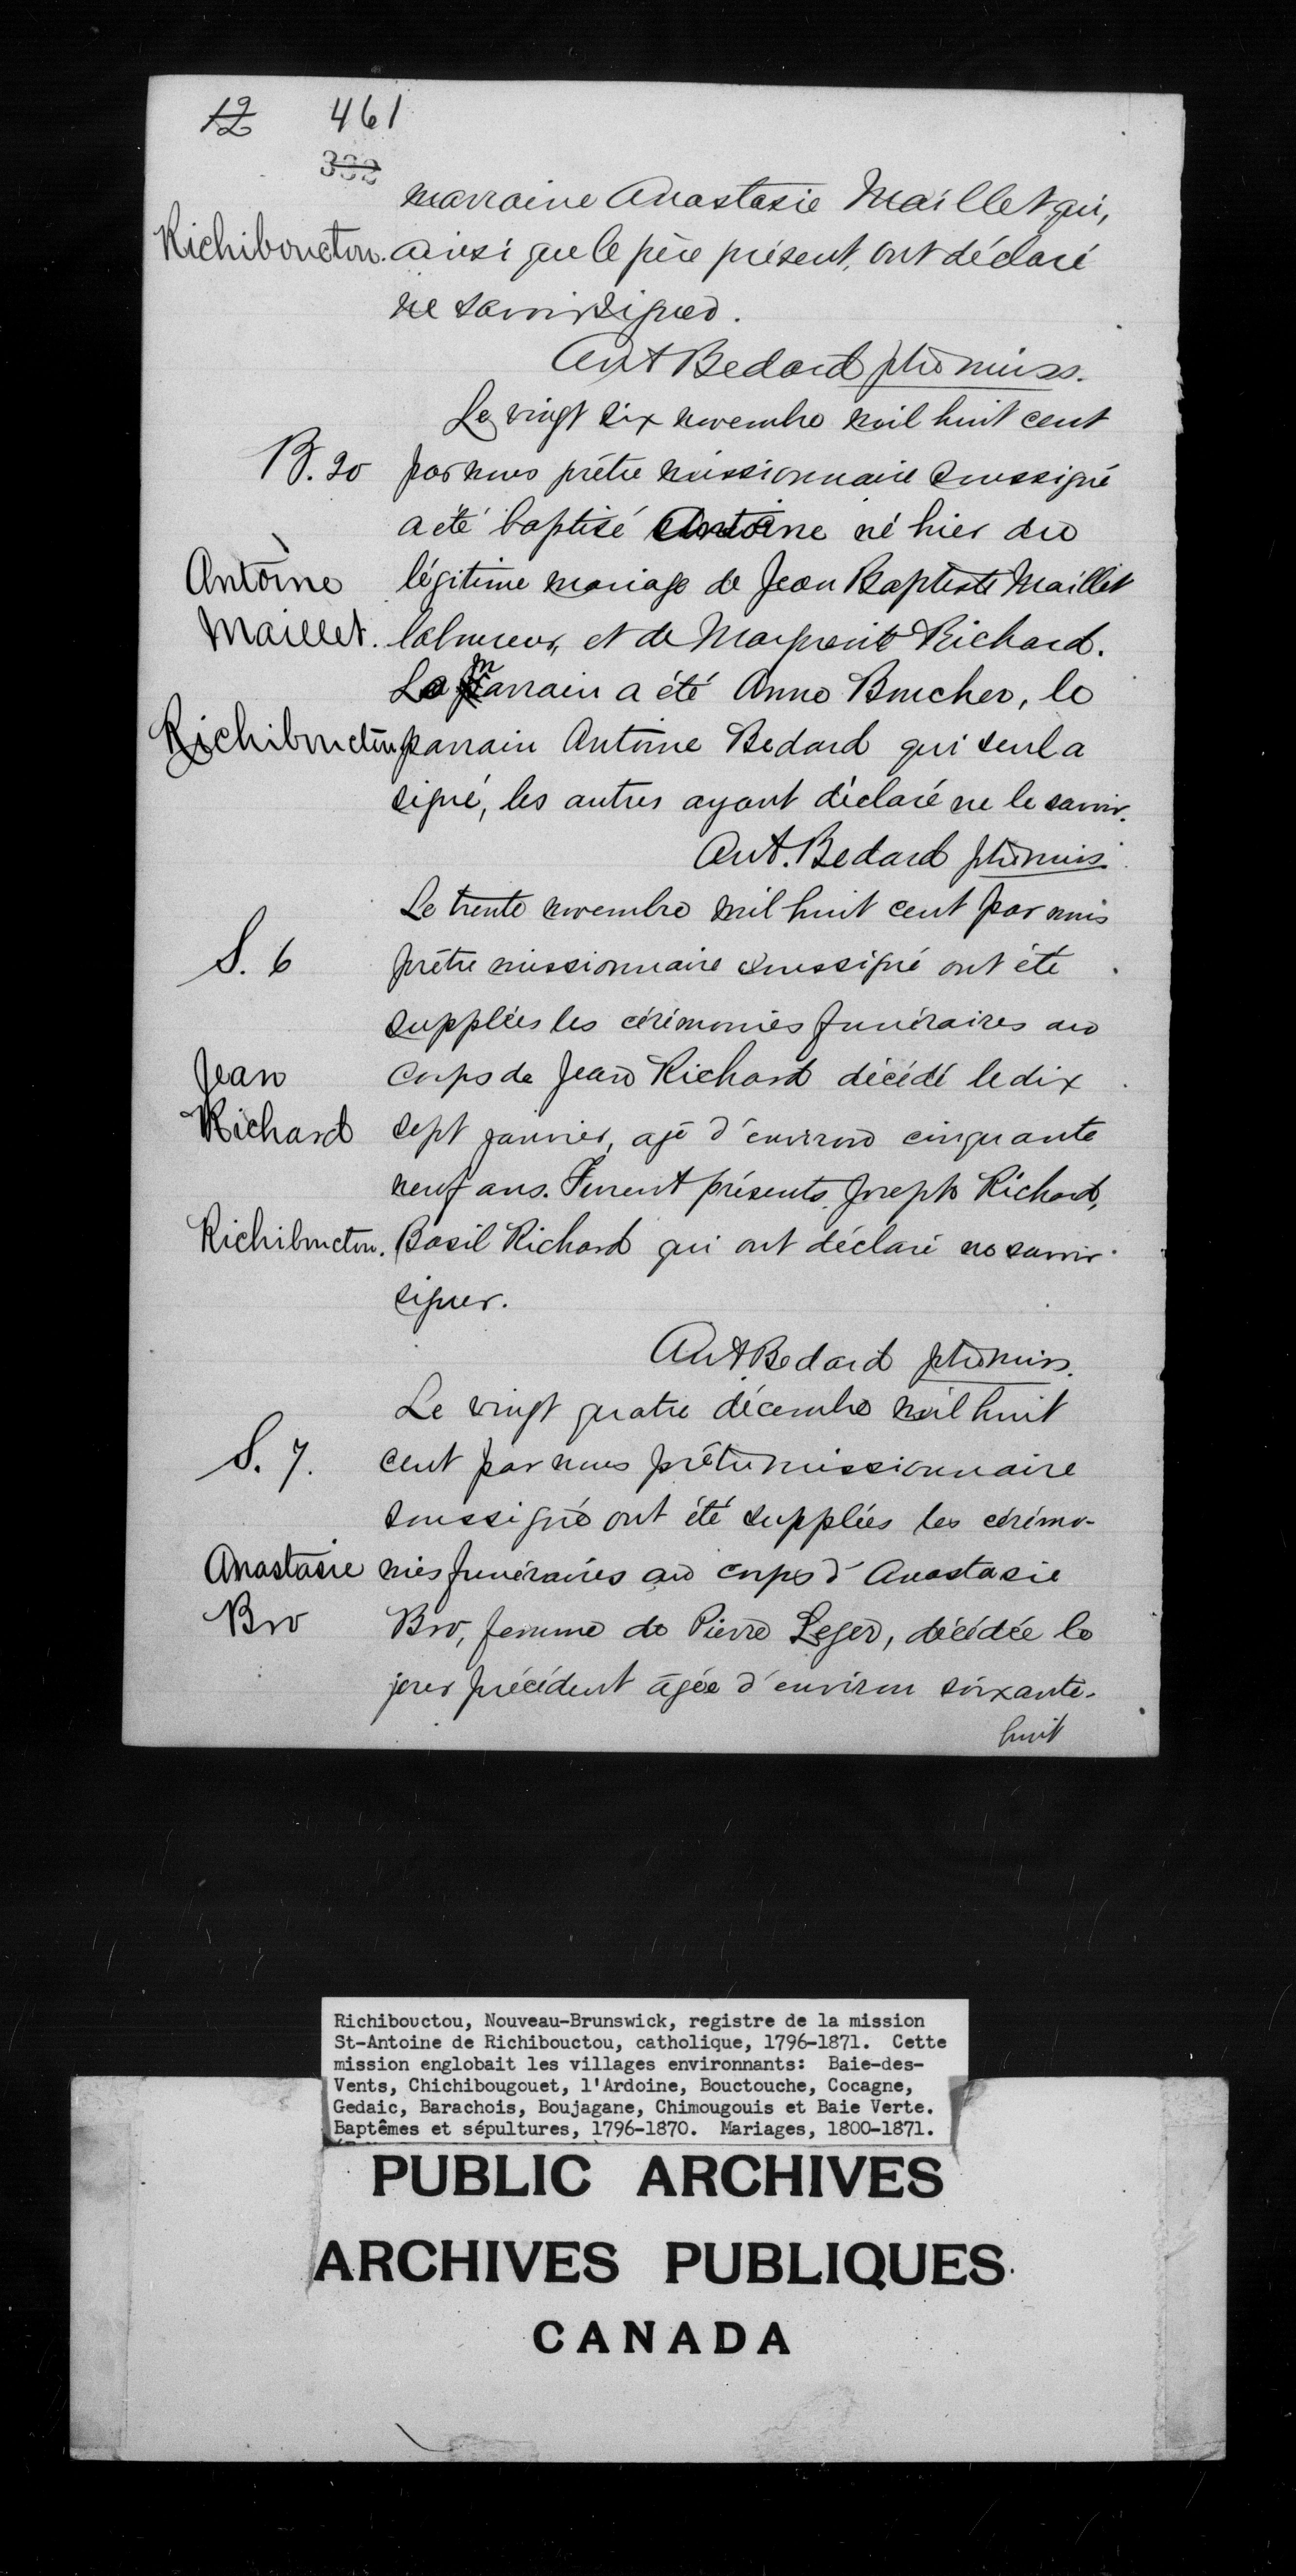 12 461
332
marraine Anastasie Maillet qui,
Richibouctou. ainsi que le père présent, ont déclaré
ne savoir signer.
Ant Bedard ptre miss.
Le vingt six novembre mil huit cent
B. 20 par nous prêtre missionnaire soussigné
a été baptisé Antoine né hier du
Antoine légitime mariage de Jean Baptiste Maillet
Maillet. laboureur, et de Marguerite Richard.
La marrain a été Anne Boucher, le
Richibouctou parrain Antoine Bedard qui seul a
signé, les autres ayant déclaré ne le savoir.
Ant. Bedard ptre miss.
Le trente novembre mil huit cent par nous
S. 6 prêtre missionnaire soussigné ont été
suppléés les cérémonies funéraires au
Jean corps de Jean Richard décédé le dix
Richard sept janvier, agé d'environ cinquante
neuf ans. Furent présents Joseph Richard,
Richibouctou. Basil Richard qui ont déclaré ne savoir
signer.
Ant Bedard ptre miss.
Le vingt quatre décembre mil huit
S. 7. cent par nous prêtre missionnaire
soussigné ont été suppléés les cérémo-
Anastasie nies funéraires au corps d'Anastasie
Bro Bro, femme de Pierre Leger, décédée le
jour précédent âgée d'environ soixante-
huit
Richibouctou, Nouveau-Brunswick, registre de la mission
St-Antoine de Richibouctou, catholique, 1796-1871. Cette
mission englobait les villages environnants: Baie-des-
Vents, Chichibougouet, l'Ardoine, Bouctouche, Cocagne,
Gedaic, Barachois, Boujagane, Chimougouis et Baie Verte.
Baptêmes et sépultures, 1796-1870. Mariages, 1800-1871.
PUBLIC ARCHIVES
ARCHIVES PUBLIQUES
CANADA